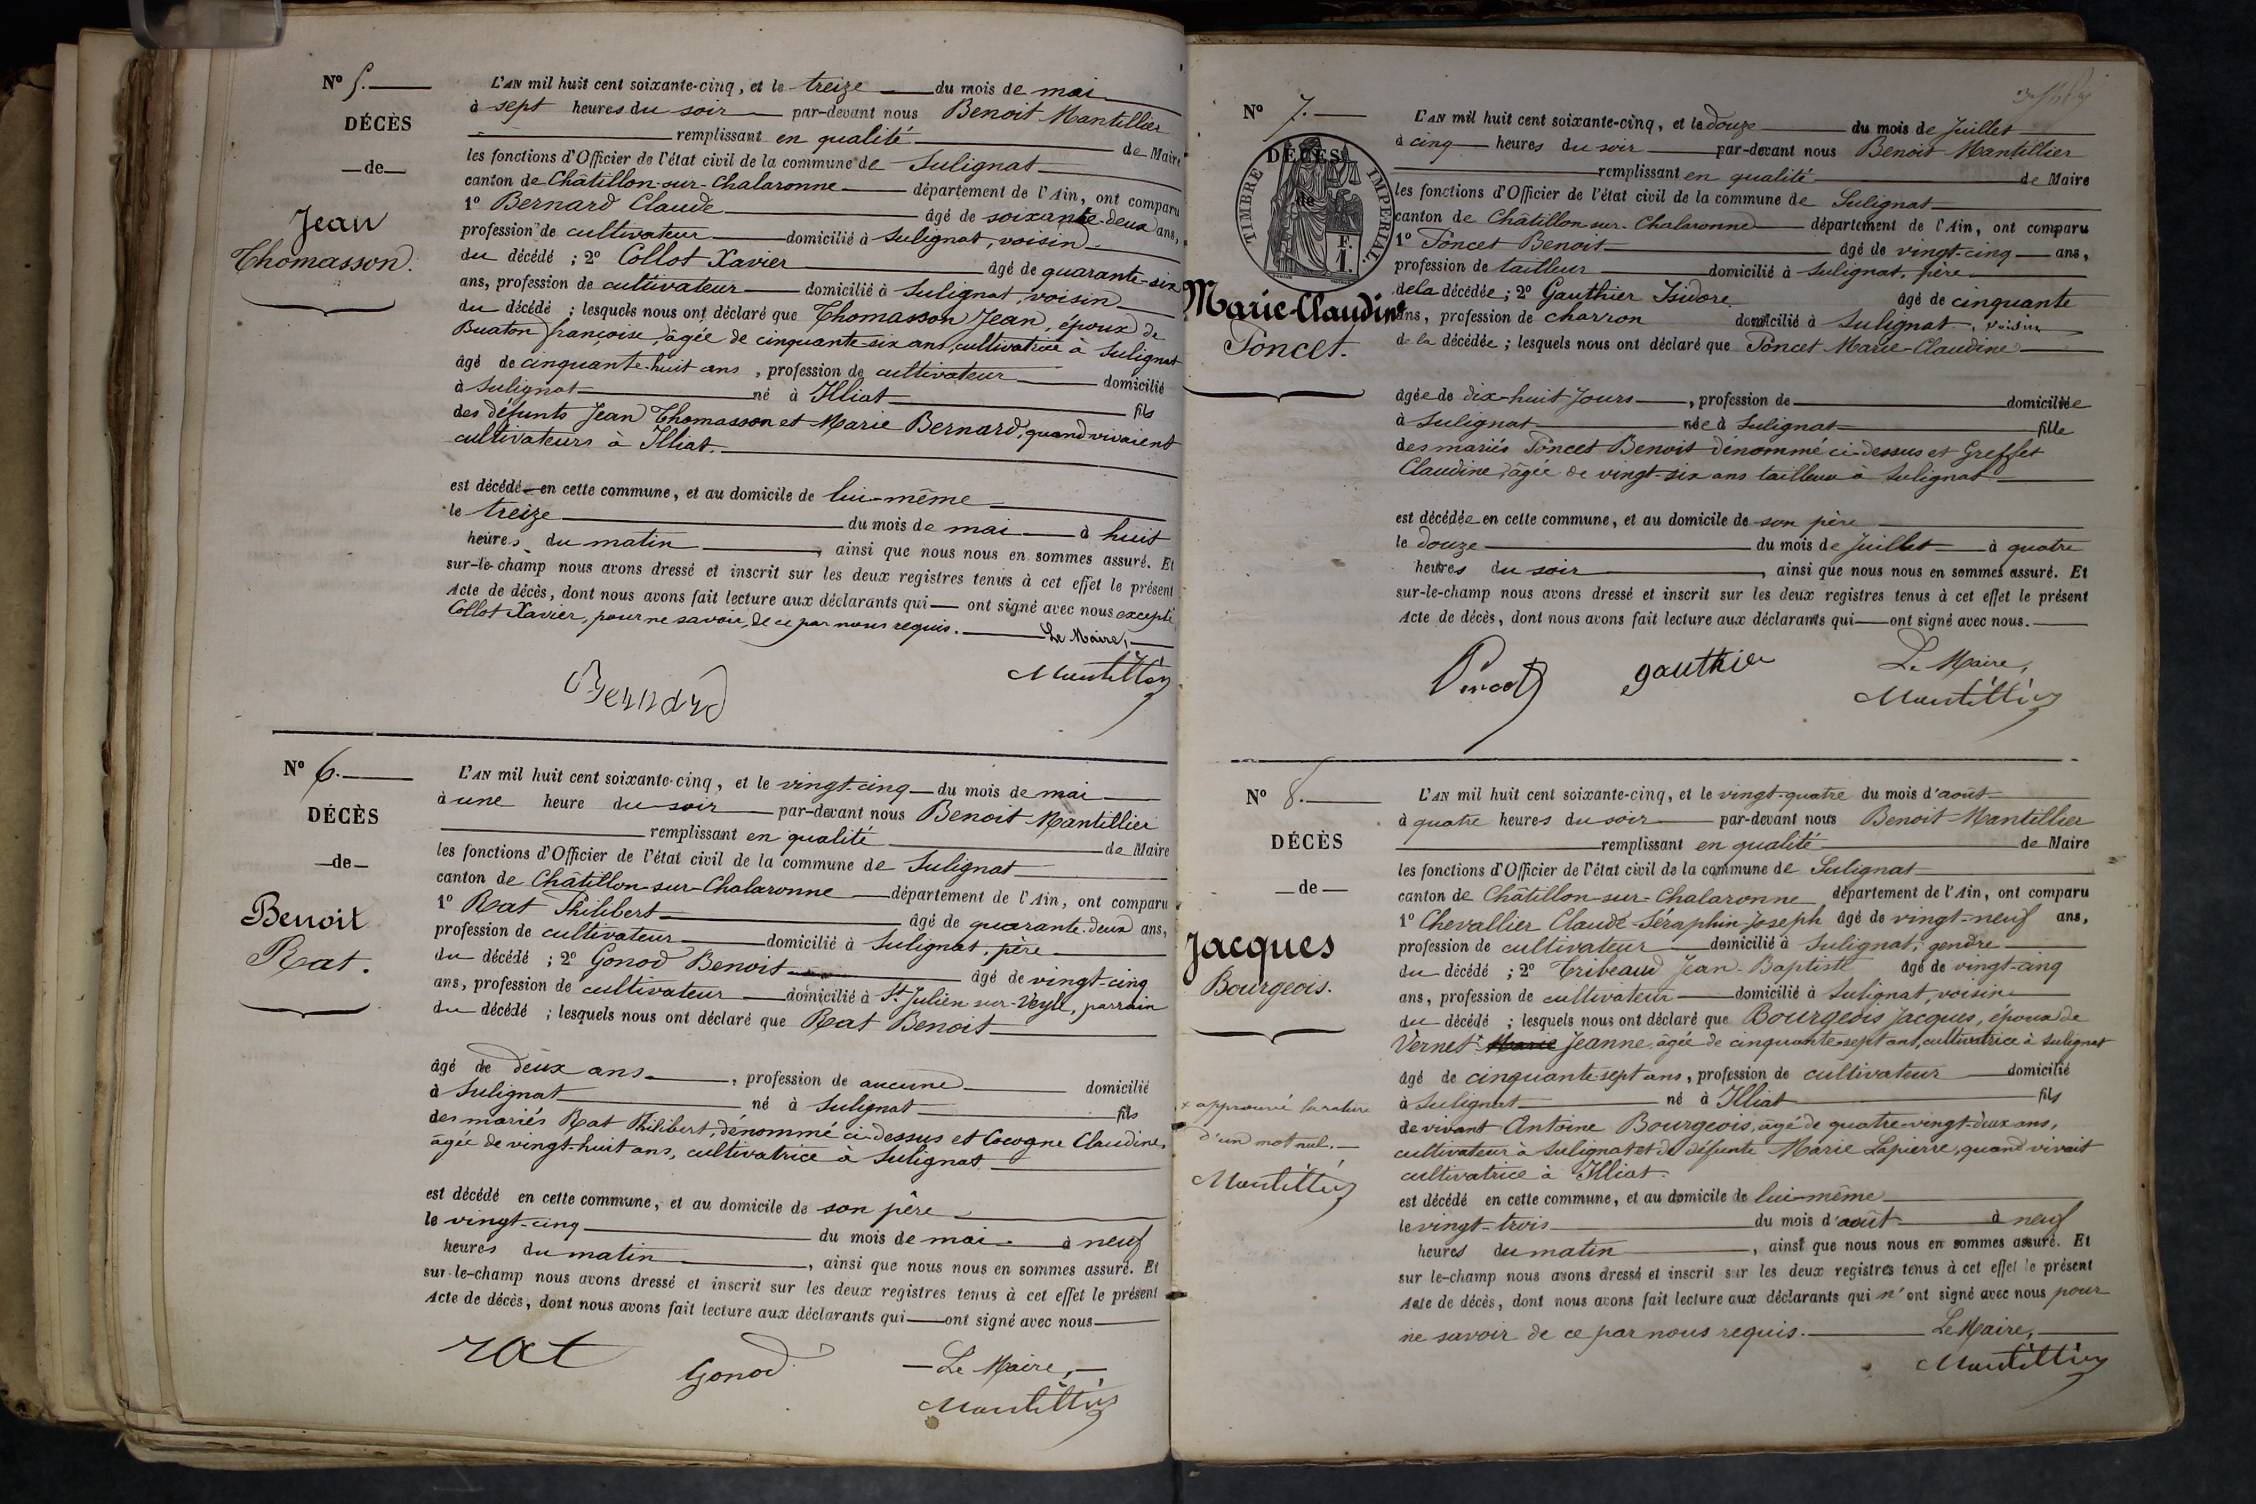 N° 5.
DÉCÈS
de
Jean
Thomasson.
L'AN mil huit cent soixante-cinq, et le treize du mois de mai
à sept heures du soir par-devant nous Benoit Mantillier
remplissant en qualité de Maire
les fonctions d'Officier de l'état civil de la commune de Sulignat
canton de Châtillon-sur-Chalaronne département de l'Ain, ont comparu
1° Bernard Claude âgé de soixante-deux ans,
profession de cultivateur domicilié à Sulignat, voisin
du décédé ; 2° Collot Xavier âgé de quarante-six
ans, profession de cultivateur domicilié à Sulignat, voisin
du décédé ; lesquels nous ont déclaré que Thomasson Jean, époux de
Buaton françoise, âgée de cinquante-six ans, cultivatrice à Sulignat
âgé de cinquante-huit ans, profession de cultivateur domicilié
à Sulignat né à Illiat fils
des défunts Jean Thomasson et Marie Bernard, quand vivaient
cultivateurs à Illiat.
est décédé en cette commune, et au domicile de lui-même
le treize du mois de mai à huit
heures du matin, ainsi que nous nous en sommes assuré. Et
sur-le-champ nous avons dressé et inscrit sur les deux registres tenus à cet effet le présent
Acte de décès, dont nous avons fait lecture aux déclarants qui ont signé avec nous excepté
Collot Xavier, pour ne savoir, de ce par nous requis. Le Maire,
Bernard Mantillier
N° 6.
DÉCÈS
de
Benoit
Rat.
L'AN mil huit cent soixante-cinq, et le vingt-cinq du mois de mai
à une heure du soir par-devant nous Benoit Mantillier
remplissant en qualité de Maire
les fonctions d'Officier de l'état civil de la commune de Sulignat
canton de Châtillon-sur-Chalaronne département de l'Ain, ont comparu
1° Rat Philibert âgé de quarante-deux ans,
profession de cultivateur domicilié à Sulignat, père
du décédé ; 2° Gonod Benoit âgé de vingt-cinq
ans, profession de cultivateur domicilié à St Julien sur-Veyle, parrain
du décédé ; lesquels nous ont déclaré que Rat Benoit
âgé de deux ans, profession de aucune domicilié
à Sulignat né à Sulignat fils
des mariés Rat Philibert, dénommé ci-dessus et Cocogne Claudine,
âgée de vingt-huit ans, cultivatrice à Sulignat
est décédé en cette commune, et au domicile de son père
le vingt-cinq du mois de mai à neuf
heures du matin, ainsi que nous nous en sommes assuré. Et
sur-le-champ nous avons dressé et inscrit sur les deux registres tenus à cet effet le présent
Acte de décès, dont nous avons fait lecture aux déclarants qui ont signé avec nous
rat Gonod Le Maire,
Mantillier
N° 7.
DÉCÈS
de
TIMBRE IMPÉRIAL
F. 1.
Marie-Claudine
Poncet.
L'AN mil huit cent soixante-cinq, et le douze du mois de Juillet
à cinq heures du soir par-devant nous Benoit Mantillier
remplissant en qualité de Maire
les fonctions d'Officier de l'état civil de la commune de Sulignat
canton de Châtillon-sur-Chalaronne département de l'Ain, ont comparu
1° Poncet Benoit âgé de vingt-cinq ans,
profession de tailleur domicilié à Sulignat, père
de la décédée ; 2° Gauthier Isidore âgé de cinquante
ans, profession de charron domicilié à Sulignat, voisin
de la décédée ; lesquels nous ont déclaré que Poncet Marie-Claudine
âgée de dix-huit Jours, profession de domiciliée
à Sulignat née à Sulignat fille
des mariés Poncet Benoit dénommé ci-dessus et Greffet
Claudine, âgée de vingt-six ans tailleuse à Sulignat
est décédée en cette commune, et au domicile de son père
le douze du mois de Juillet à quatre
heures du soir, ainsi que nous nous en sommes assuré. Et
sur-le-champ nous avons dressé et inscrit sur les deux registres tenus à cet effet le présent
Acte de décès, dont nous avons fait lecture aux déclarants qui ont signé avec nous.
Poncet gauthier Le Maire,
Mantillier
N° 8.
DÉCÈS
de
Jacques
Bourgeois.
x approuvé la rature
d'un mot nul.
Mantillier
L'AN mil huit cent soixante-cinq, et le vingt-quatre du mois d'août
à quatre heures du soir par-devant nous Benoit Mantillier
remplissant en qualité de Maire
les fonctions d'Officier de l'état civil de la commune de Sulignat
canton de Châtillon-sur-Chalaronne département de l'Ain, ont comparu
1° Chevallier Claude-Séraphin-Joseph âgé de vingt-neuf ans,
profession de cultivateur domicilié à Sulignat, gendre
du décédé ; 2° Tribeaud Jean-Baptiste âgé de vingt-cinq
ans, profession de cultivateur domicilié à Sulignat, voisin
du décédé ; lesquels nous ont déclaré que Bourgeois Jacques, époux de
Vernet x Marie Jeanne, âgée de cinquante-sept ans, cultivatrice à Sulignat
âgé de cinquante-sept ans, profession de cultivateur domicilié
à Sulignat né à Illiat fils
de vivant Antoine Bourgeois, âgé de quatre-vingt-deux ans,
cultivateur à Sulignat et de défunte Marie Lapierre, quand vivait
cultivatrice à Illiat.
est décédé en cette commune, et au domicile de lui-même
le vingt-trois du mois d'août à neuf
heures du matin, ainsi que nous nous en sommes assuré. Et
sur le-champ nous avons dressé et inscrit sur les deux registres tenus à cet effet le présent
Acte de décès, dont nous avons fait lecture aux déclarants qui n'ont signé avec nous pour
ne savoir de ce par nous requis. Le Maire,
Mantillier